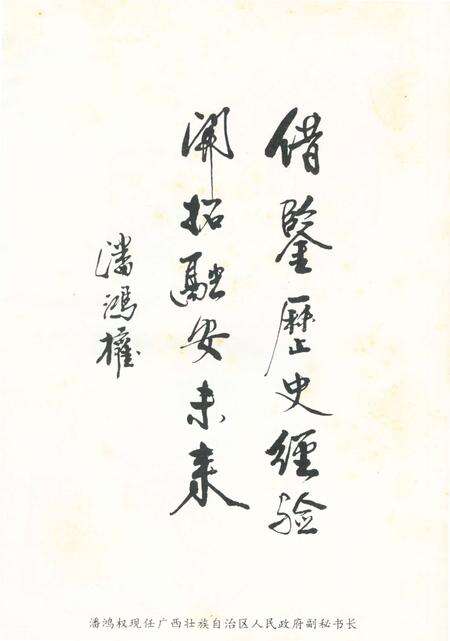 借鑒歷史經驗
開拓融安未来
潘鴻權
潘鸿权现任广西壮族自治区人民政府副秘书长